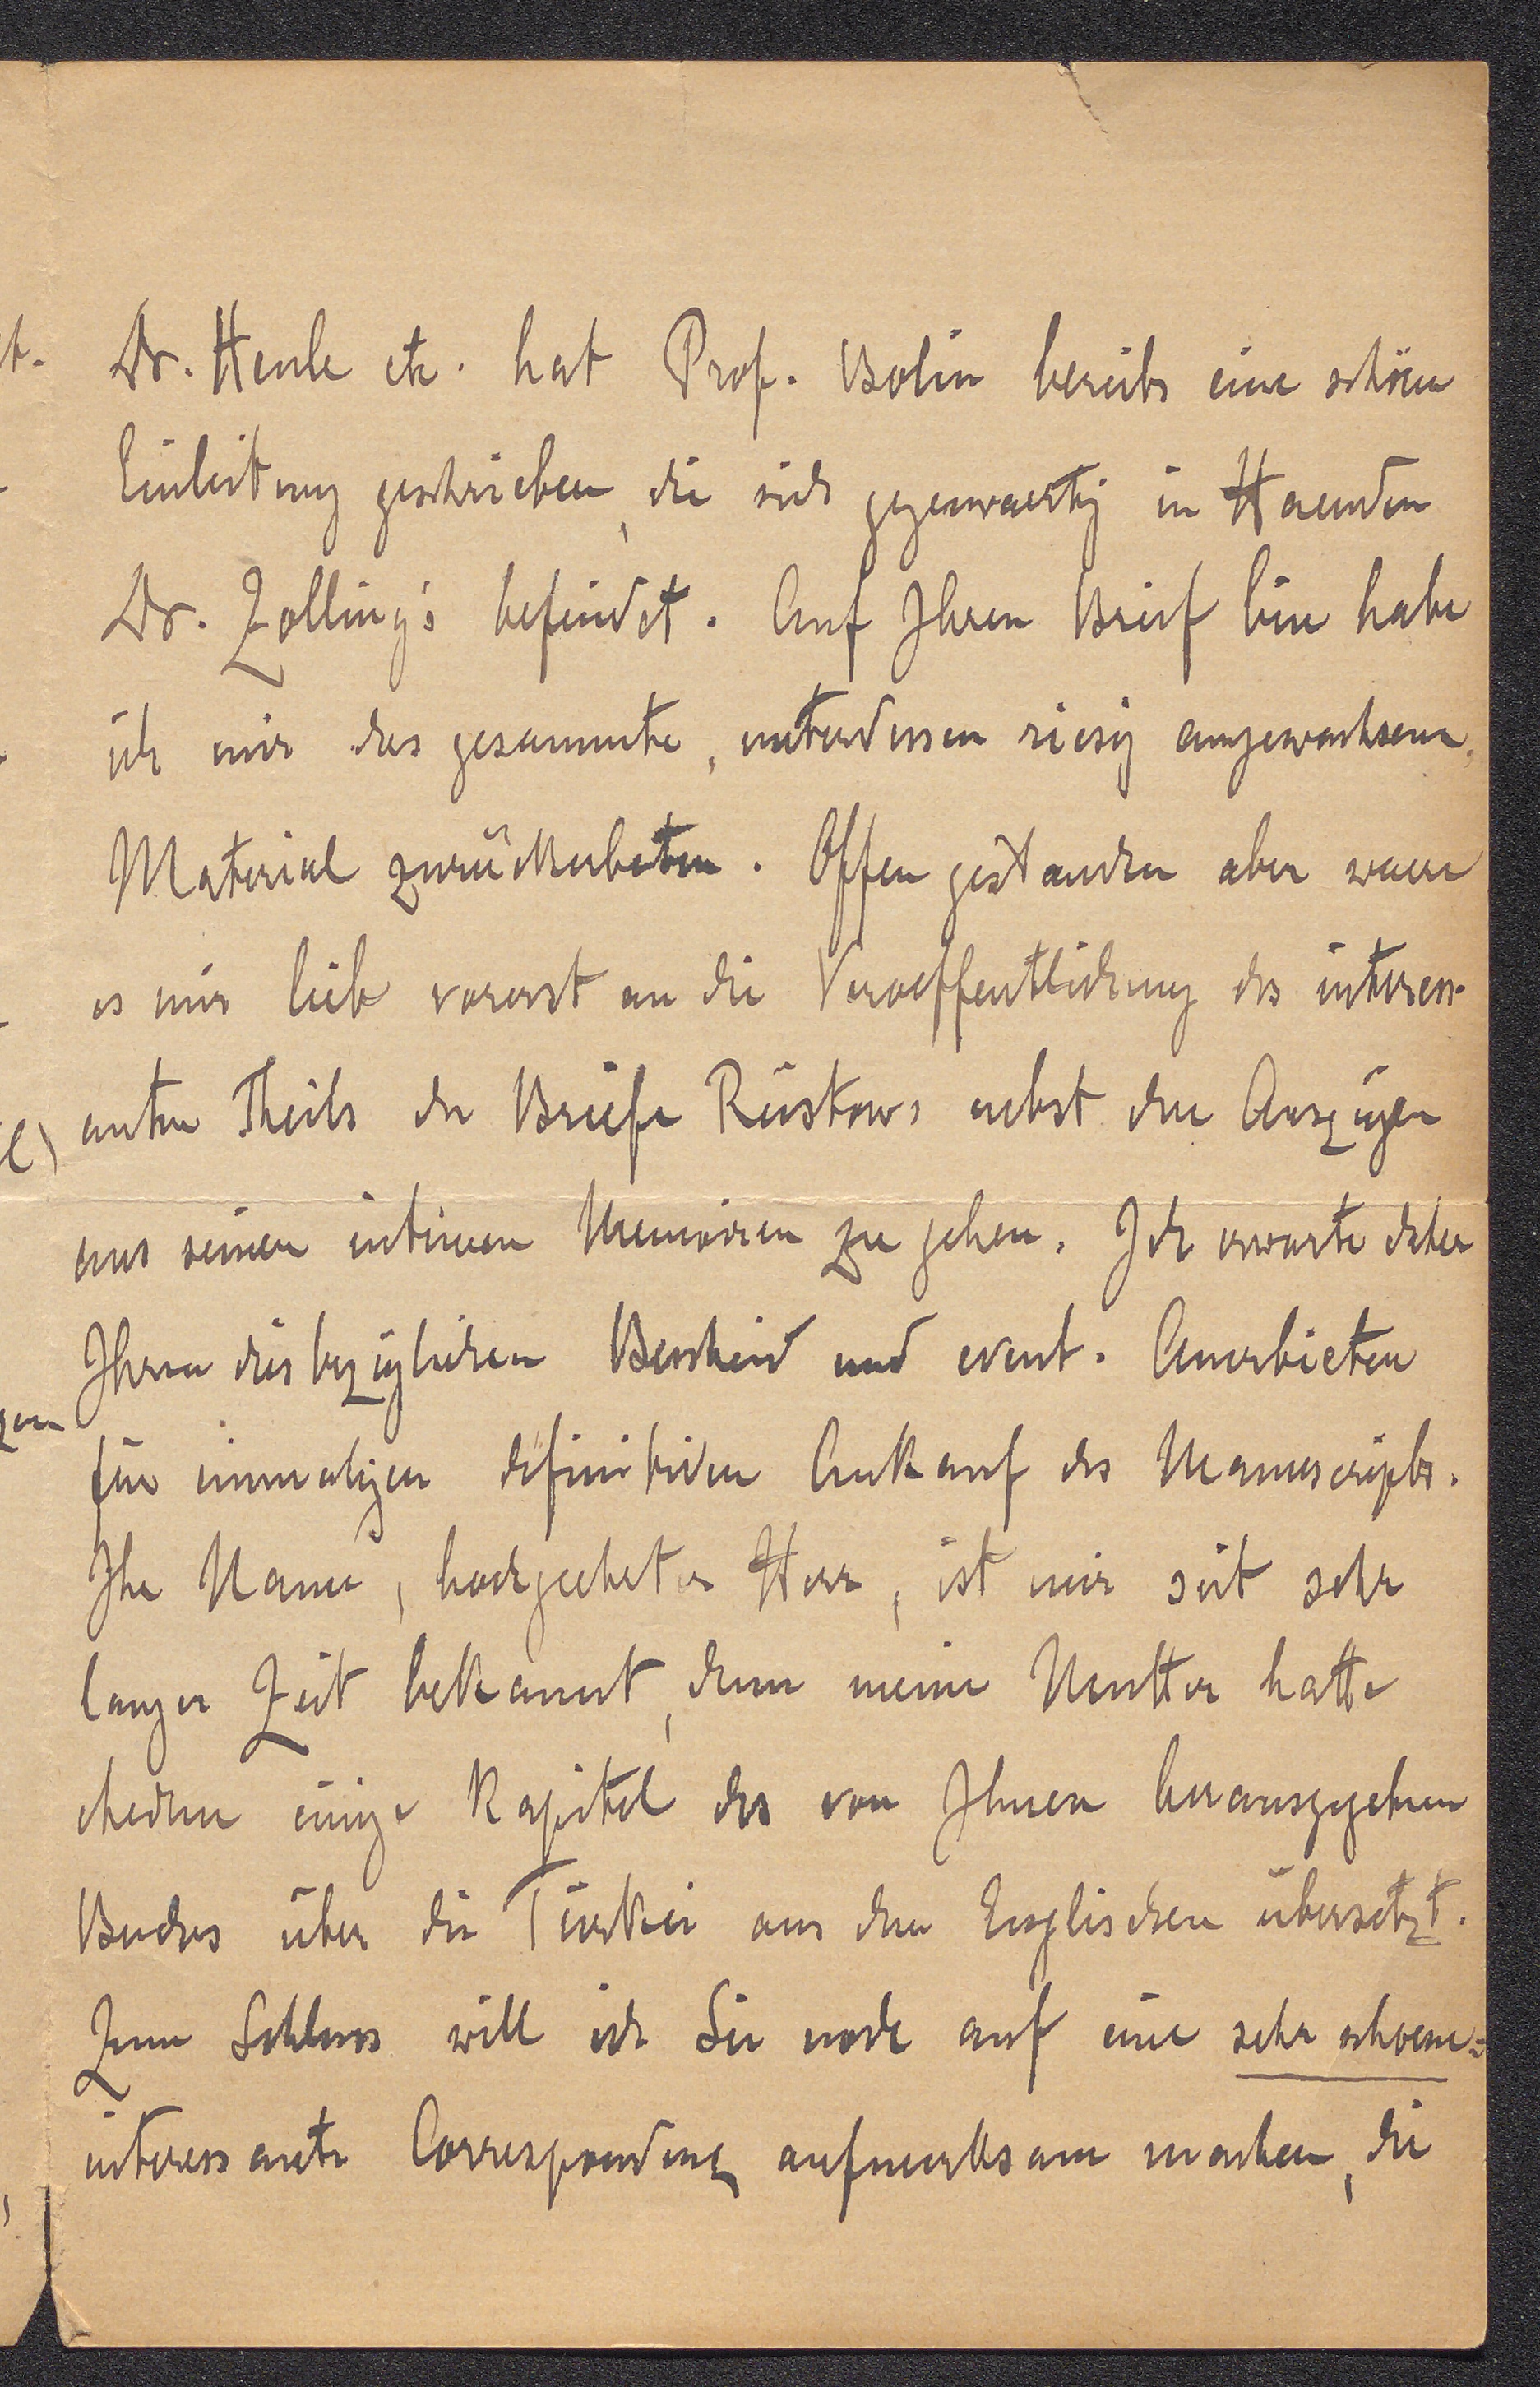 Dr. Henle etc. hat Prof. Bolin bereits eine schöne
Einleitung geschrieben, die sich gegenwaertig in Haenden
Dr. Zolling's befindet. Auf Ihren Brief hin habe
ich mir das gesammte, unterdessen riesig angewachsene,
Material zurückerbeten. Offen gestanden aber waere
es mir lieb vorerst an die Veroeffentlichung des interess-
anten Theils der Briefe Rüstows nebst den Auszügen
aus seinen intimen Memoiren zu gehen. Ich erwarte daher
Ihren diesbezüglichen Bescheid und event. Anerbieten
für einmaligen definitiven Ankauf des Manuscripts.
Ihr Name, hochgeehrter Herr, ist mir seit sehr
langer Zeit bekannt, denn meine Mutter hatte
ehedem einige Kapitel des von Ihnen herausgegebenen
Buches über die Türkei aus dem Englischen übersetzt.
Zum Schluss will ich Sie noch auf eine sehr schoene=
interessante Correspondenz aufmerksam machen, die